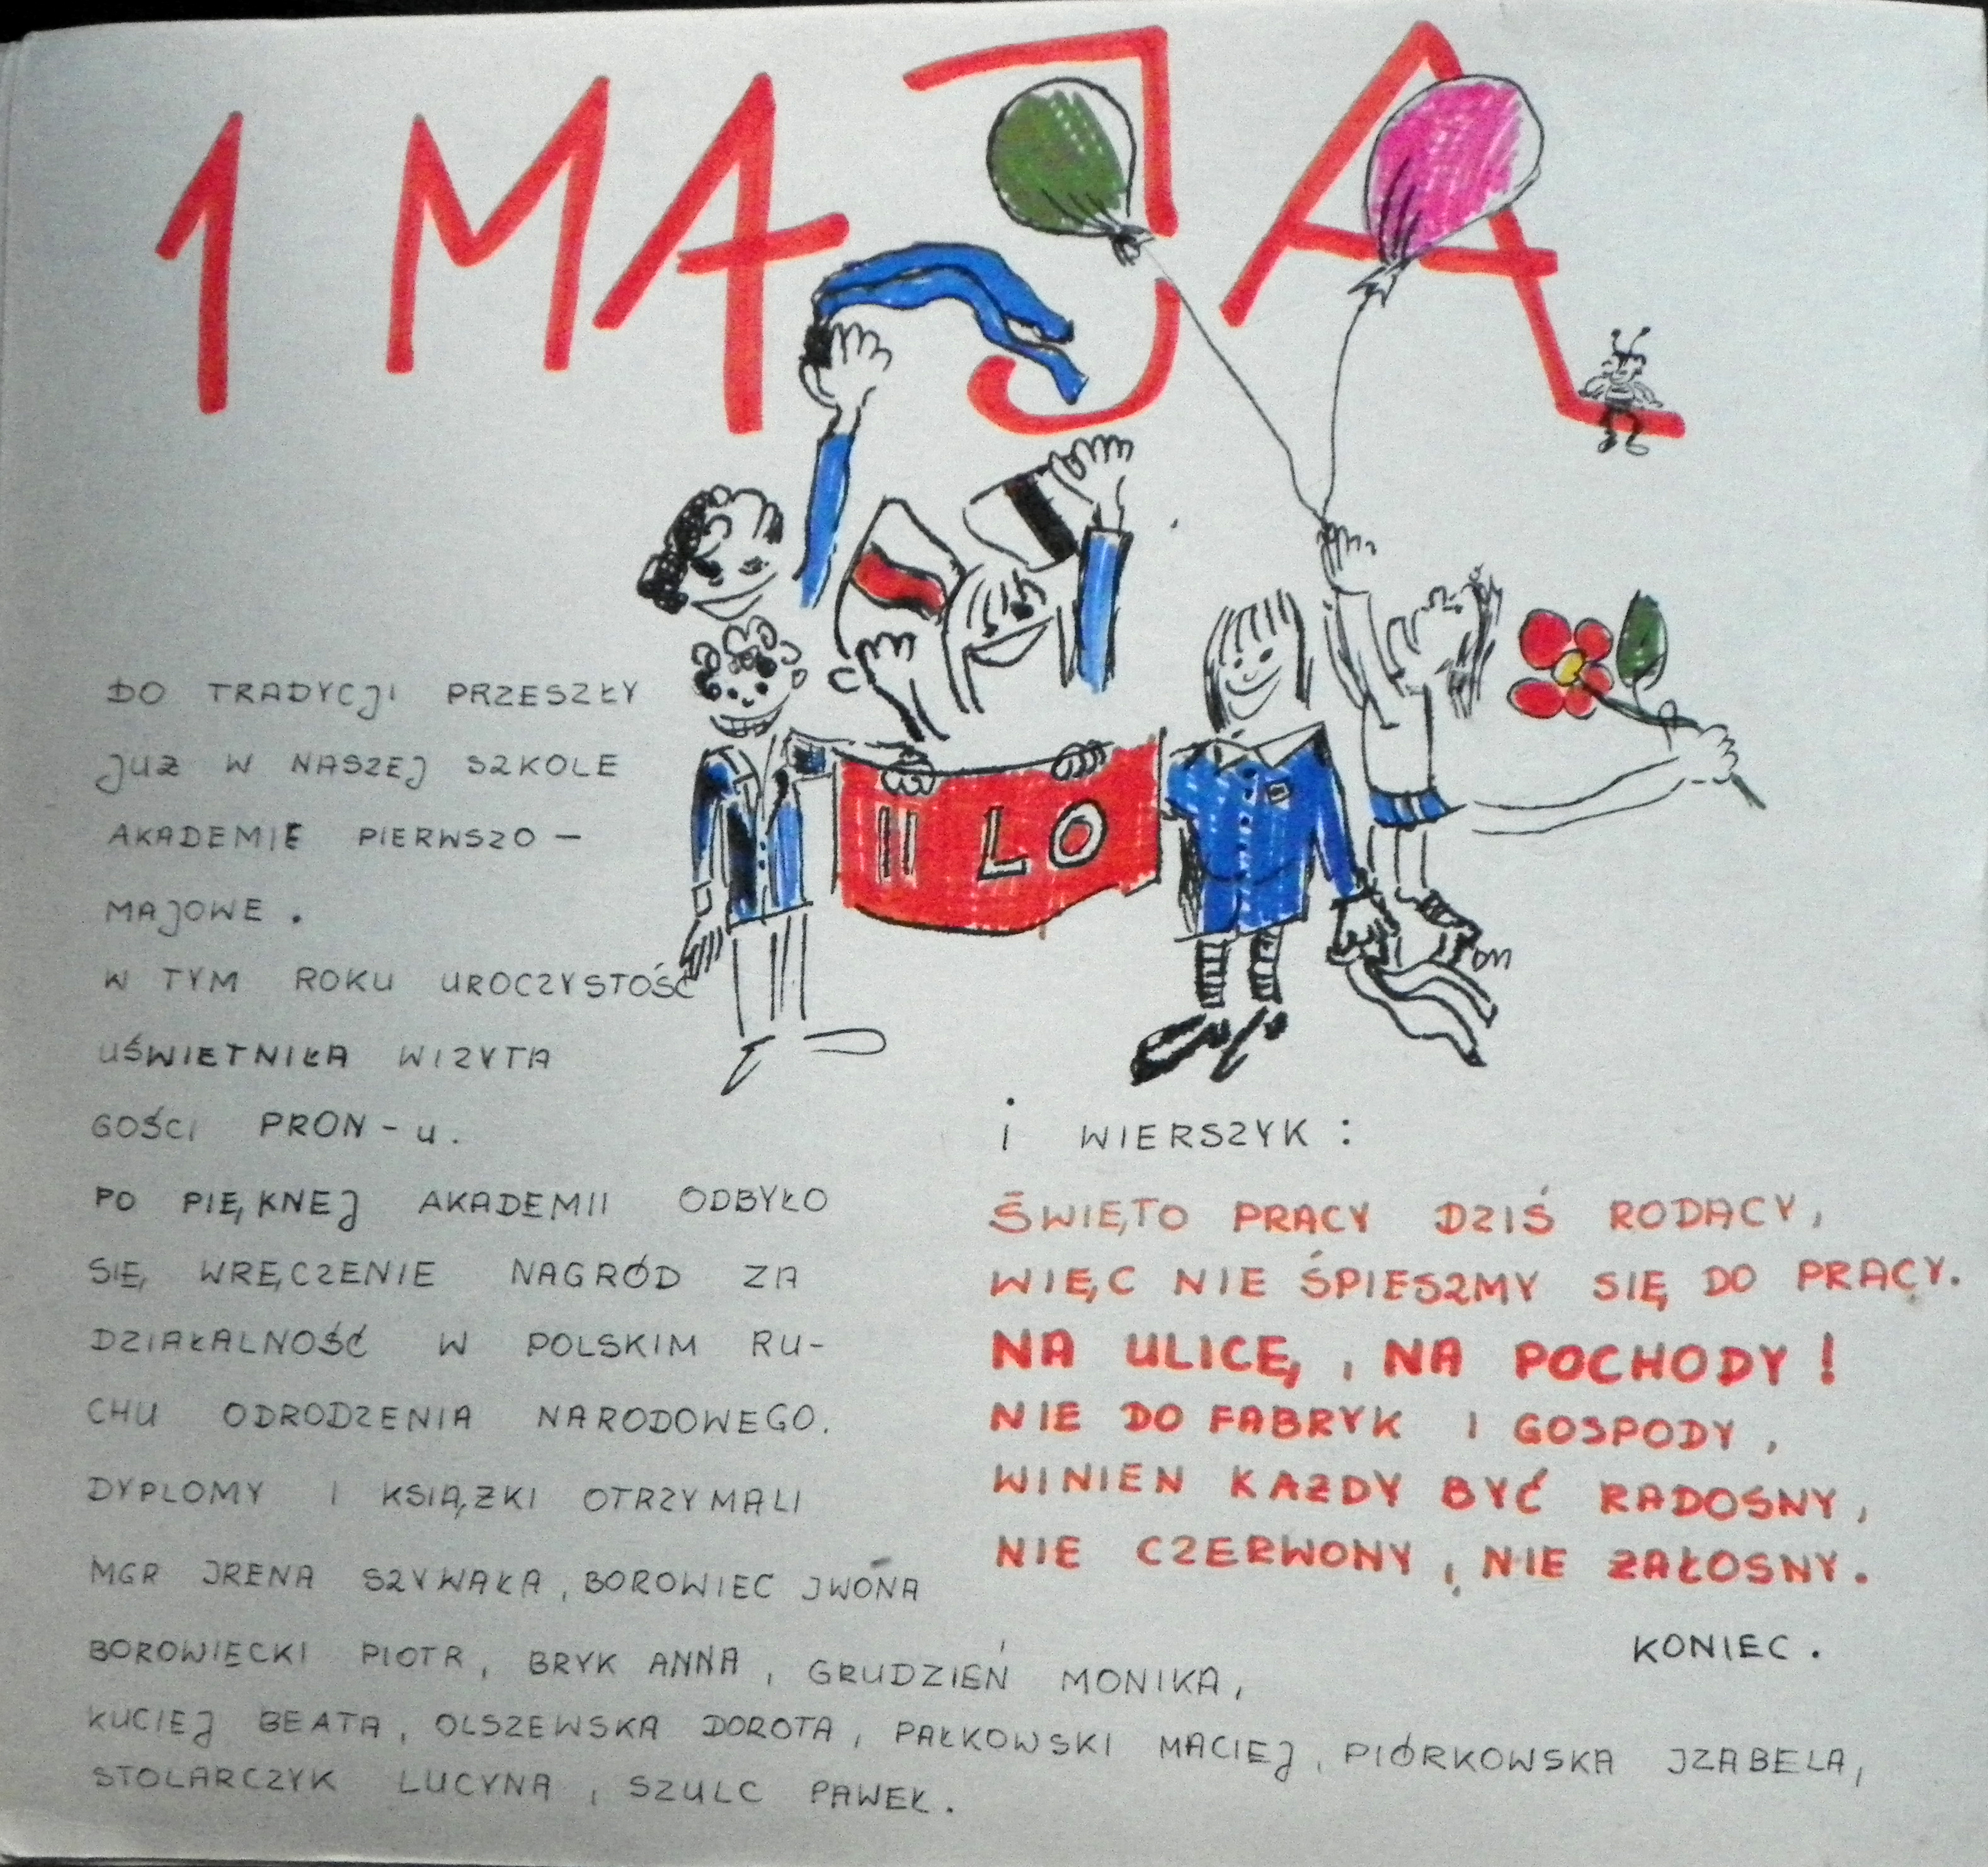 1 MAJA
II LO
DO TRADYCJI PRZESZŁY
JUŻ W NASZEJ SZKOLE
AKADEMIE PIERWSZO -
MAJOWE .
W TYM ROKU UROCZYSTOŚĆ
UŚWIETNIŁA WIZYTA
GOŚCI PRON - u.
PO PIĘKNEJ AKADEMII ODBYŁO
SIĘ WRĘCZENIE NAGRÓD ZA
DZIAŁALNOŚĆ W POLSKIM RU-
CHU ODRODZENIA NARODOWEGO.
DYPLOMY I KSIĄŻKI OTRZYMALI
MGR IRENA SZYWAŁA, BOROWIEC IWONA
BOROWIECKI PIOTR, BRYK ANNA, GRUDZIEŃ MONIKA,
KUCIEJ BEATA, OLSZEWSKA DOROTA, PAŁKOWSKI MACIEJ, PIÓRKOWSKA IZABELA,
STOLARCZYK LUCYNA, SZULC PAWEŁ.
i WIERSZYK :
ŚWIĘTO PRACY DZIŚ RODACY,
WIĘC NIE ŚPIESZMY SIĘ DO PRACY.
NA ULICĘ, NA POCHODY !
NIE DO FABRYK I GOSPODY,
WINIEN KAŻDY BYĆ RADOSNY,
NIE CZERWONY, NIE ŻAŁOSNY.
KONIEC.